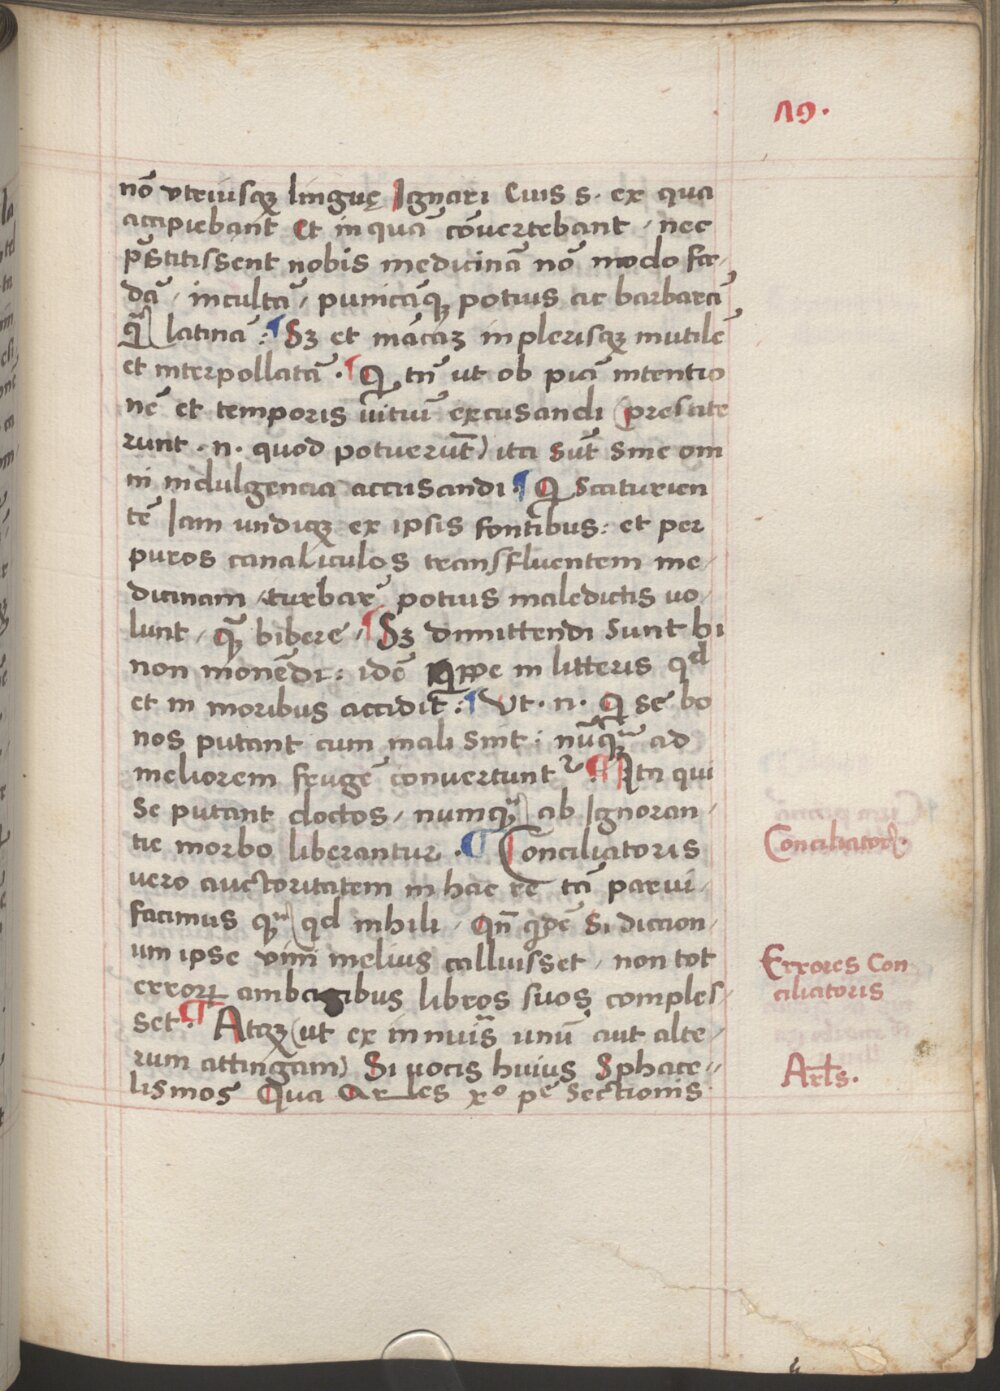 19.
nō vtriusqꝫ linguę Ignari Cuis s. ex qua
accipiebant Et in quā cōuertebant, nec
p̄stitissent nobis medicinā nō modo fœ,
dā, incultā, punicāqꝫ potius ac barbarā
q̄ latinā: ¶ Sꝫ et mācāꝫ in plerisqꝫ mutilē
et interpollatā. ¶ Q tn̄ ut ob piā intentio
nē et temporis vitiū excusandi (prestite
runt . n. quod potuerūt) ita sūt sine om
ni indulgencia accusandi ¶ Q Scaturien
tē Iam undiqꝫ ex ipsis fontibus: et per
puros canaliculos transfluentem me,
dicinam, turbarē potius maledictis uo,
lunt, q̄ bibere, ¶ Sꝫ dimittendi sunt hi
non monēdi: idē qppe in litteris qd
et in moribus accidit: ¶ Vt. n. Q se bo
nos putant cum mali sint: nūq̄ ad
meliorem frugē convertunt᷑ ¶ Ita qui
se putant doctos, numq̄ ab Ignoran,
tie morbo liberantur. ¶ Conciliatoris
vero auctoritatem in hac re tā parui,
facimus q̄ qd nihili, Qn̄ qdē si diction,
um ipse vim melius calluisset, non tot
erroꝝ ambagibus libros suos comples,
set. ¶ Atqꝫ (ut ex innuīs unū aut alte,
rum attingam) Si uocis huius Sphace,,
lismos Qua Arles xº pē sectionis
Conciliatoꝝ.
Errores Con
ciliatoris
Arls.